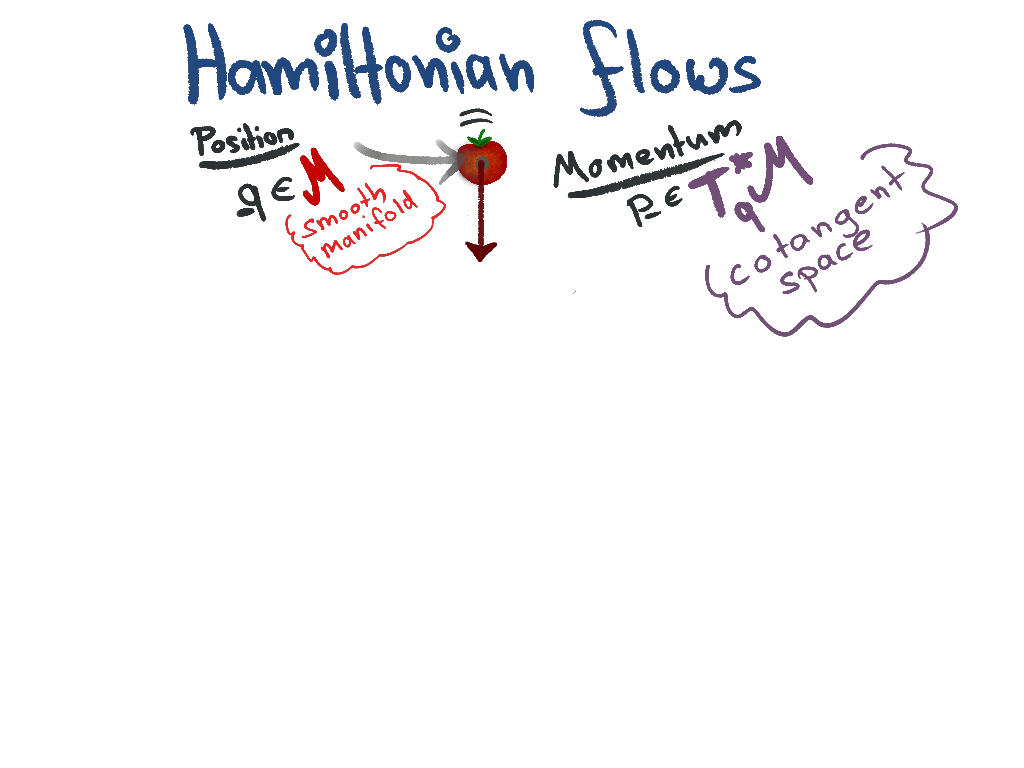 Hamiltonian flows
Position
q ∈ M
smooth
manifold
Momentum
p ∈ T*qM
cotangent
space